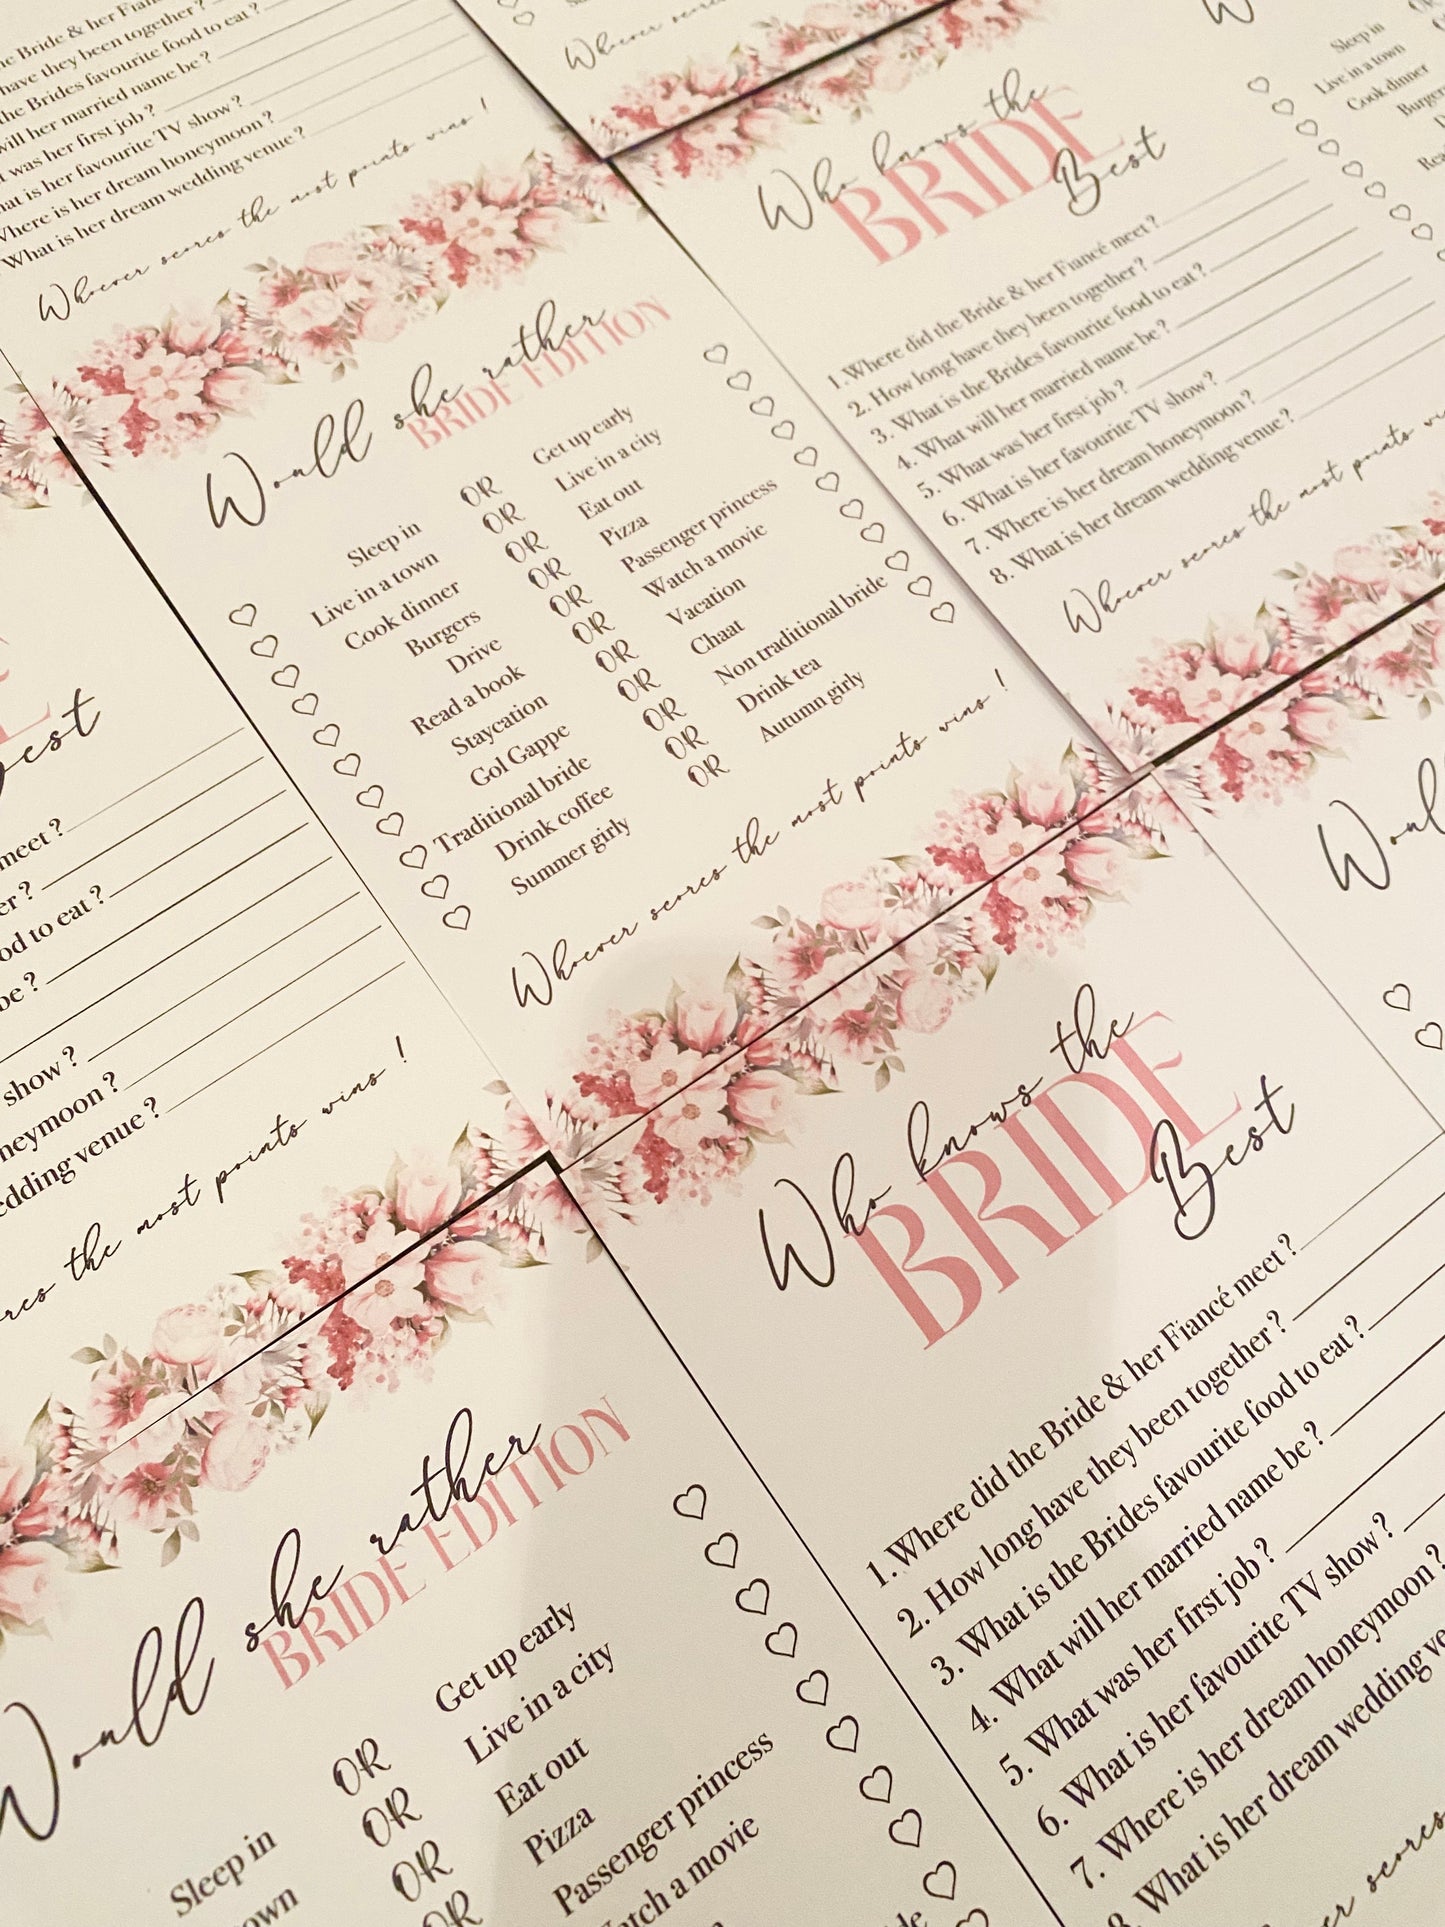 he Bride & her Fiancé
have they been together ?
the Brides favourite food to eat ?
will her married name be ?
t was her first job ?
hat is her favourite TV show ?
Where is her dream honeymoon ?
What is her dream wedding venue ?
Whoever scores the most points wins !
Whoever
Would she rather
BRIDE EDITION
Sleep in OR Get up early
Live in a town OR Live in a city
Cook dinner OR Eat out
Burgers OR Pizza
Drive OR Passenger princess
Read a book OR Watch a movie
Staycation OR Vacation
Gol Gappe OR Chaat
Traditional bride OR Non traditional bride
Drink coffee OR Drink tea
Summer girly OR Autumn girly
Whoever scores the most points wins !
Who knows the
BRIDE
Best
1. Where did the Bride & her Fiancé meet ?
2. How long have they been together ?
3. What is the Brides favourite food to eat ?
4. What will her married name be ?
5. What was her first job ?
6. What is her favourite TV show ?
7. Where is her dream honeymoon ?
8. What is her dream wedding venue ?
Whoever scores the most points wi
W
Sleep in
Live in a town
Cook dinner
Burgers
Rea
Best
meet ?
er ?
od to eat ?
be ?
show ?
neymoon ?
edding venue ?
res the most points wins !
Would she rather
BRIDE EDITION
Sleep in OR Get up early
own OR Live in a city
OR Eat out
OR Pizza
Passenger princess
atch a movie
Who knows the
BRIDE
Best
1. Where did the Bride & her Fiancé meet ?
2. How long have they been together ?
3. What is the Brides favourite food to eat ?
4. What will her married name be ?
5. What was her first job ?
6. What is her favourite TV show ?
7. Where is her dream honeymoon ?
8. What is her dream wedding ve
er scores
Woul